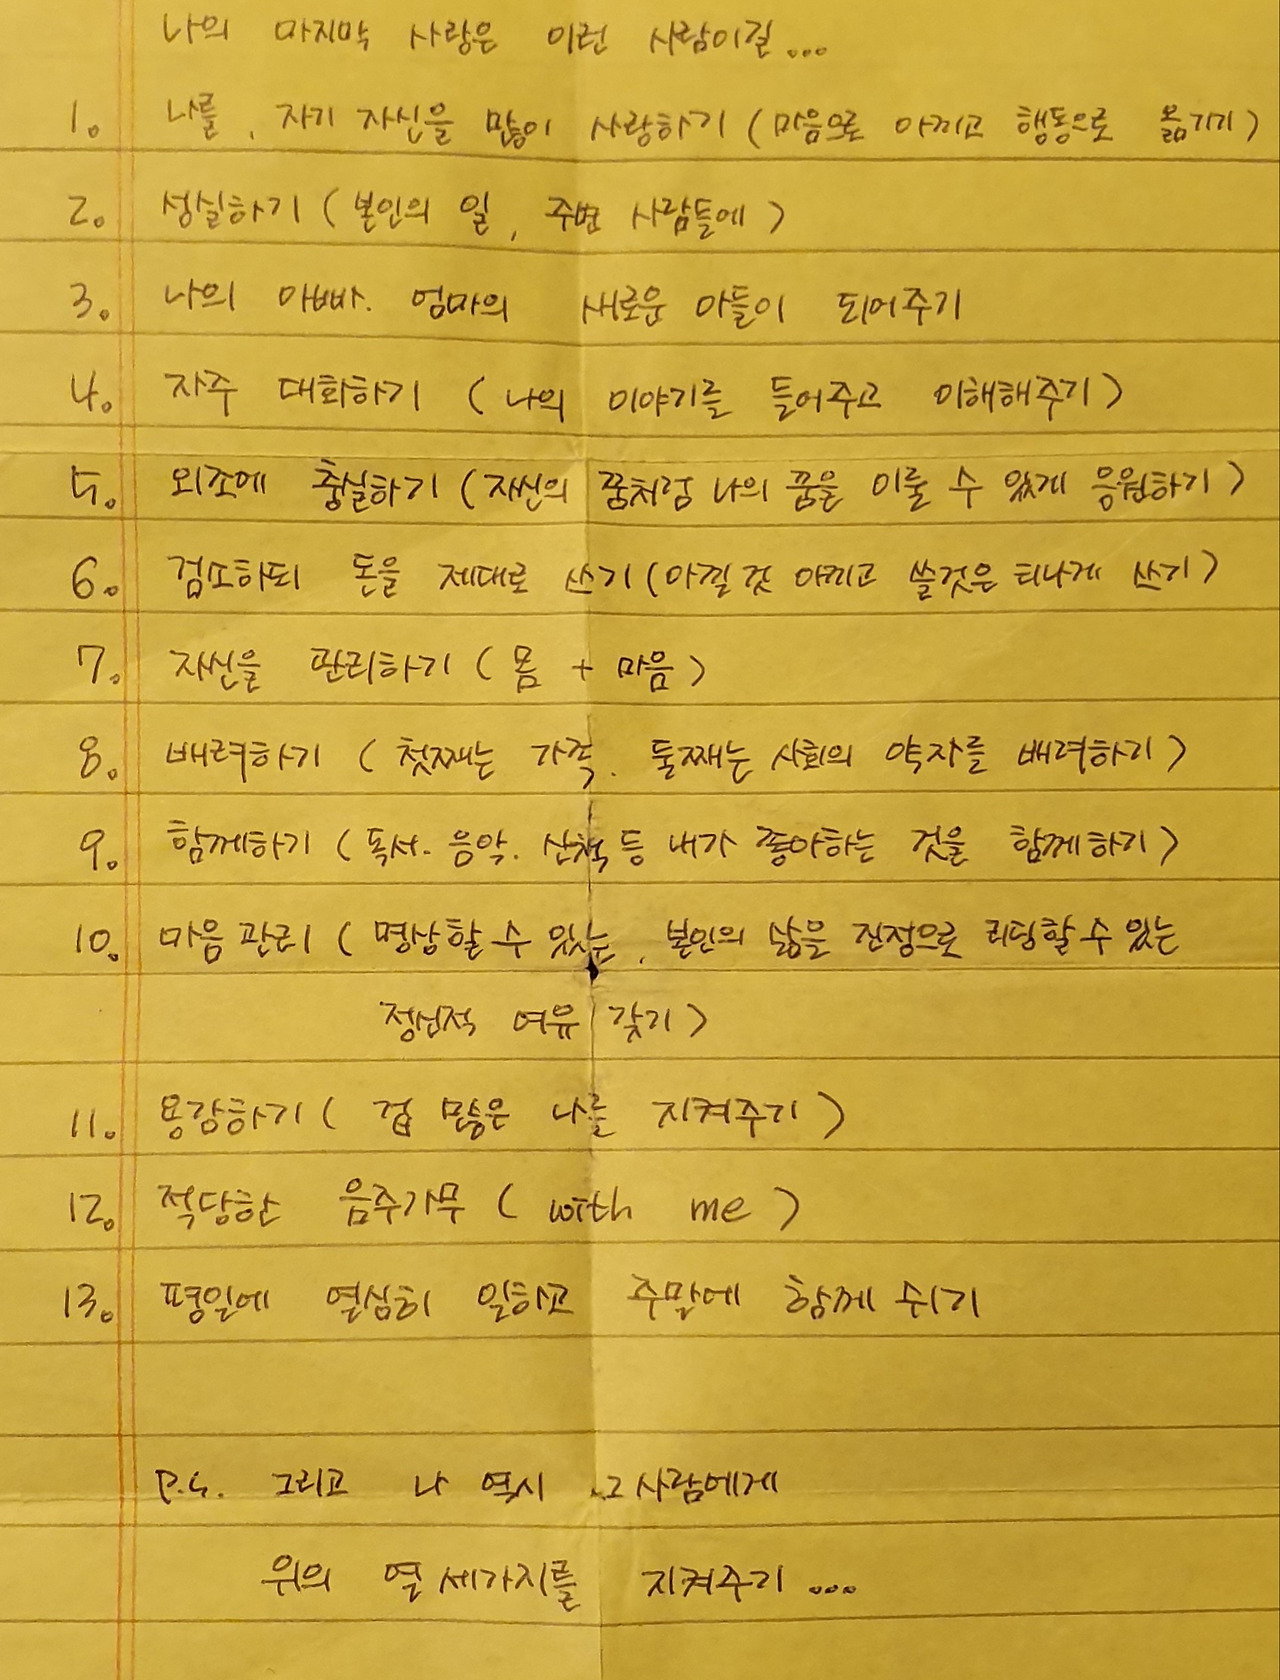 나의 마지막 사랑은 이런 사람이길...
1. 나를, 자기 자신을 많이 사랑하기 (마음으로 아끼고 행동으로 옮기기)
2. 성실하기 (본인의 일, 주변 사람들에)
3. 나의 아빠. 엄마의 새로운 아들이 되어주기
4. 자주 대화하기 (나의 이야기를 들어주고 이해해주기)
5. 외조에 충실하기 (자신의 꿈처럼 나의 꿈을 이룰 수 있게 응원하기)
6. 검소하되 돈을 제대로 쓰기 (아낄것 아끼고 쓸것은 티나게 쓰기)
7. 자신을 관리하기 (몸 + 마음)
8. 배려하기 (첫째는 가족. 둘째는 사회의 약자를 배려하기)
9. 함께하기 (독서. 음악. 산책 등 내가 좋아하는 것을 함께하기)
10. 마음관리 (명상할 수 있는, 본인의 삶을 진정으로 리딩할 수 있는
정신적 여유 갖기)
11. 용감하기 (겁 많은 나를 지켜주기)
12. 적당한 음주가무 (with me)
13. 평일에 열심히 일하고 주말에 함께 쉬기
P.S. 그리고 나 역시 그 사람에게
위의 열 세가지를 지켜주기...